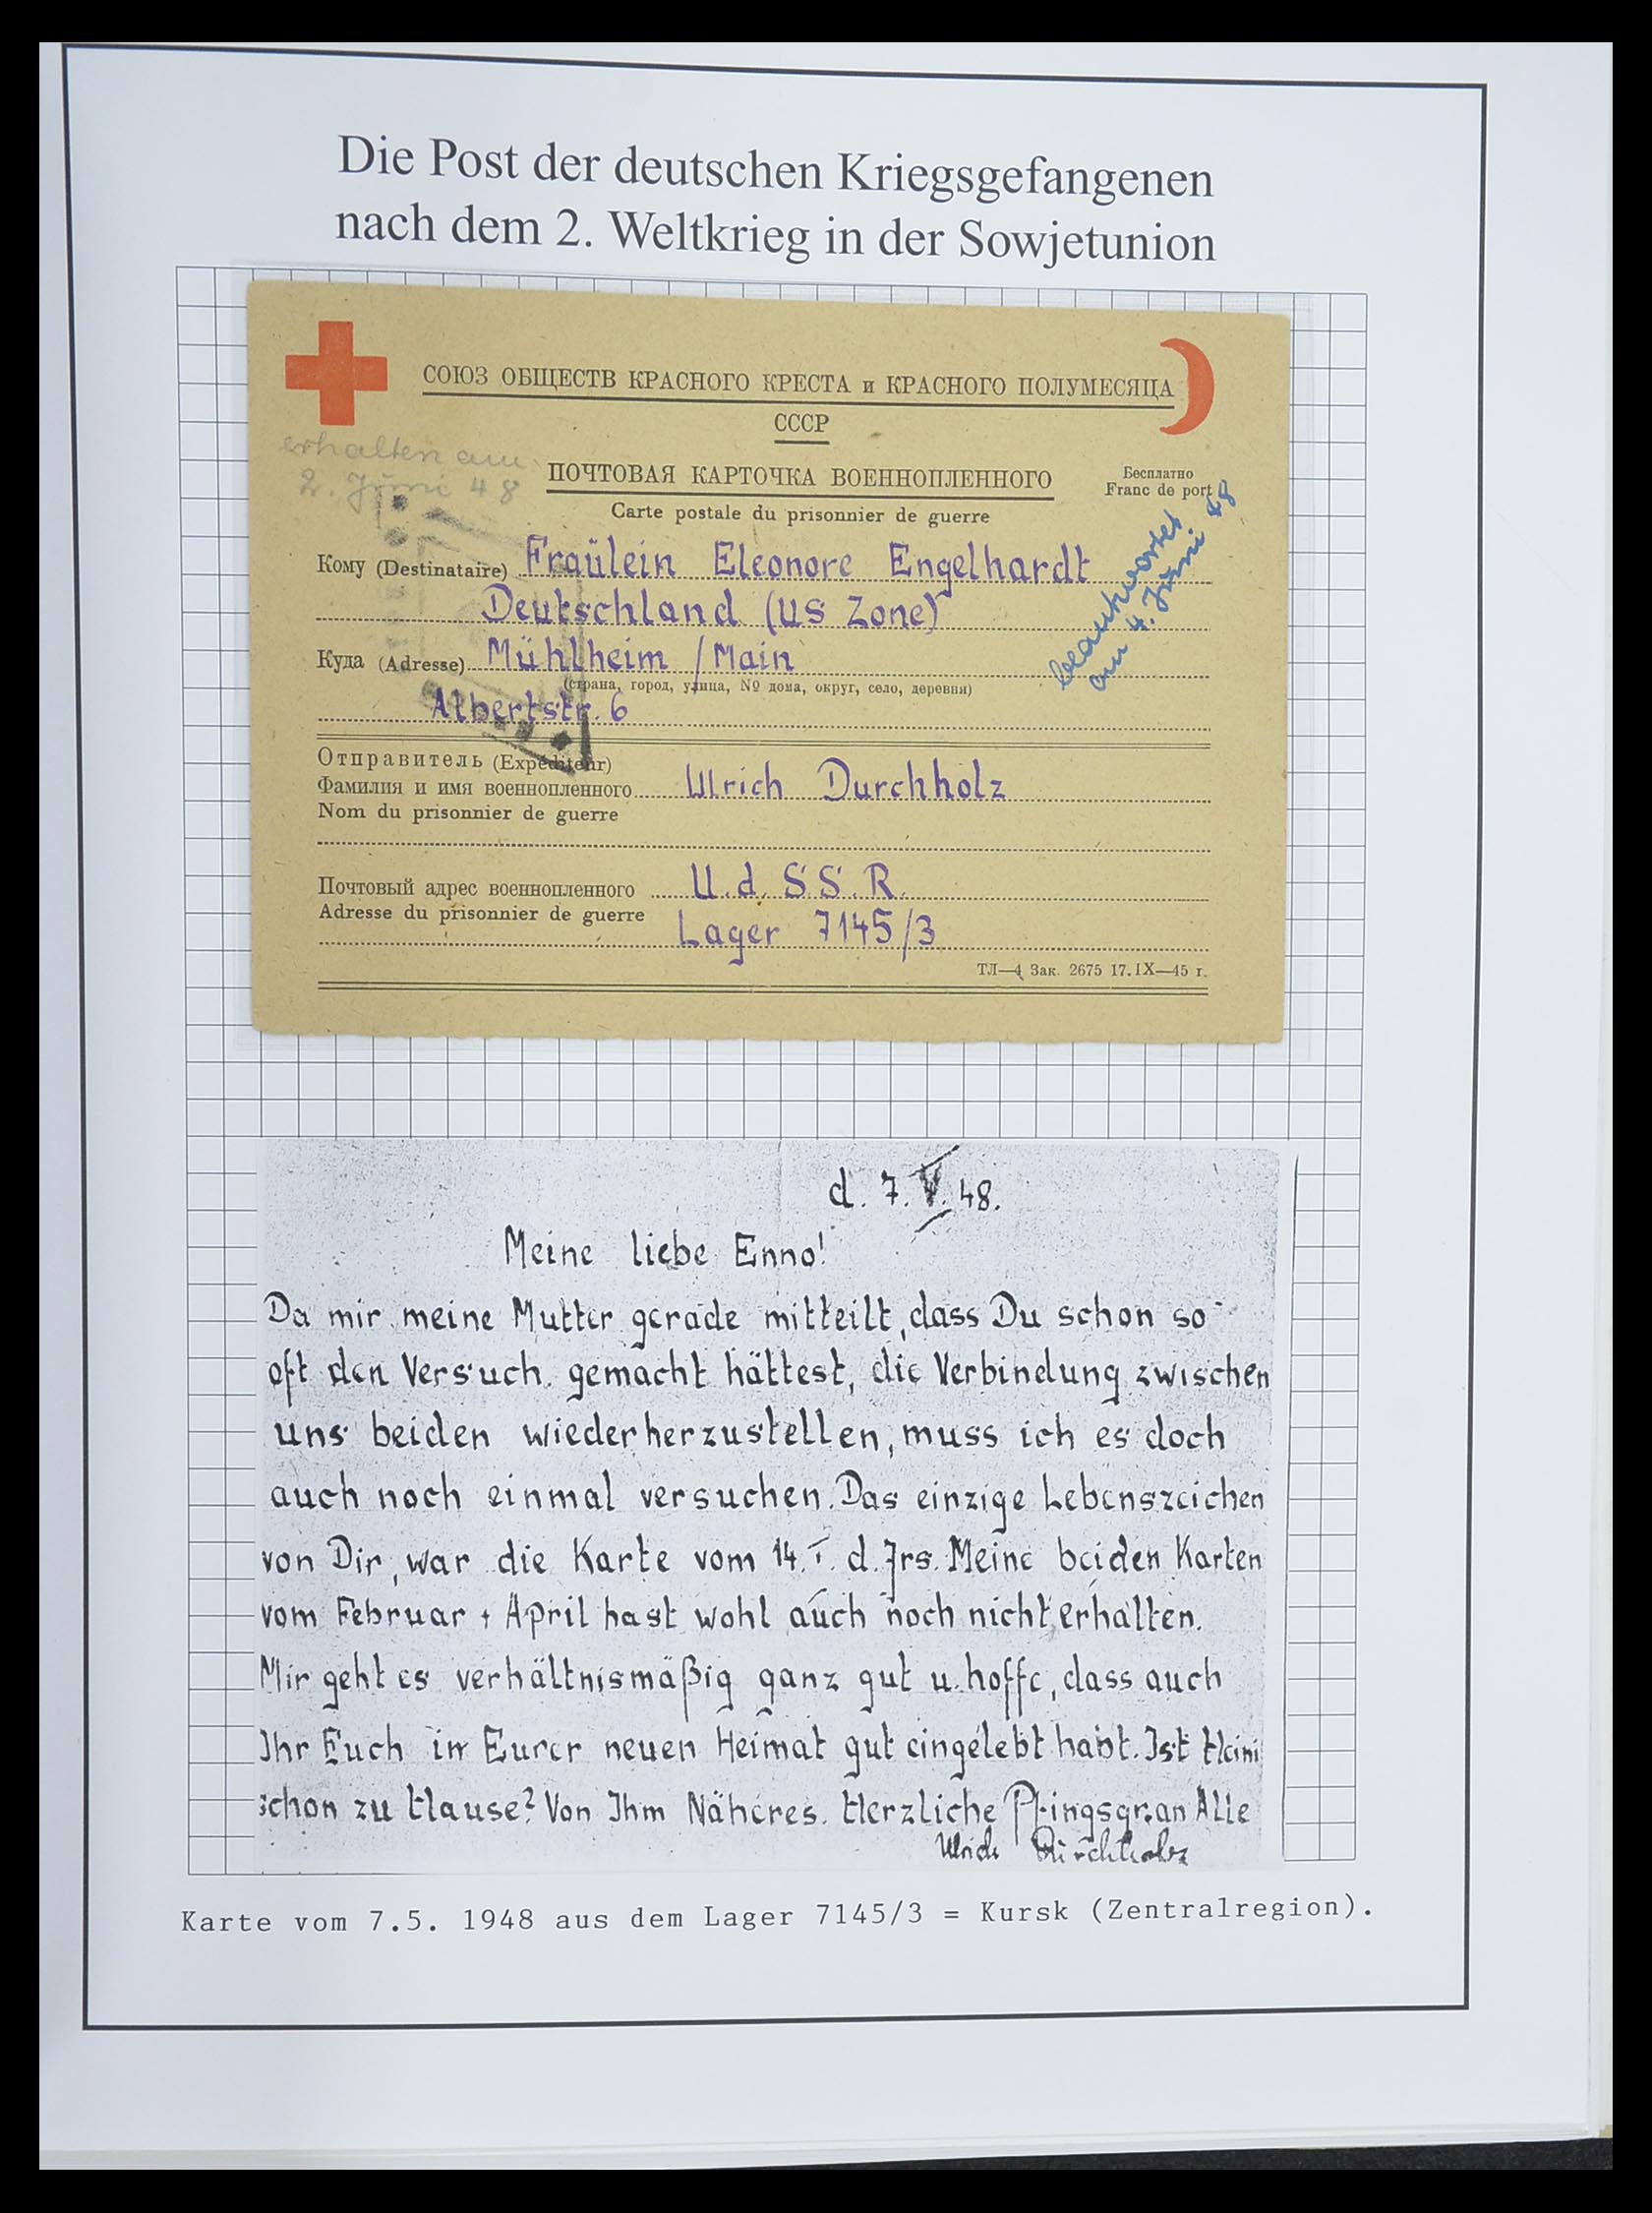 Die Post der deutschen Kriegsgefangenen
nach dem 2. Weltkrieg in der Sowjetunion
СОЮЗ ОБЩЕСТВ КРАСНОГО КРЕСТА и КРАСНОГО ПОЛУМЕСЯЦА
СССР
erhalten am
2. Juni 48
ПОЧТОВАЯ КАРТОЧКА ВОЕННОПЛЕННОГО
Бесплатно
Franc de port
Carte postale du prisonnier de guerre
beantwortet
am 4. Juni 48
Кому (Destinataire) Fraülein Eleonore Engelhardt
Deutschland (US Zone)
Куда (Adresse) Mühlheim / Main
(страна, город, улица, № дома, округ, село, деревня)
Albertstr. 6
Отправитель (Expéditeur)
Фамилия и имя военнопленного Ulrich Durchholz
Nom du prisonnier de guerre
Почтовый адрес военнопленного U.d.S.S.R.
Adresse du prisonnier de guerre Lager 7145/3
ТЛ—4 Зак. 2675 17.IX—45 г.
d. 7. V. 48.
Meine liebe Enno!
Da mir meine Mutter gerade mitteilt, dass Du schon so
oft den Versuch gemacht hättest, die Verbindung zwischen
uns beiden wiederherzustellen, muss ich es doch
auch noch einmal versuchen. Das einzige Lebenszeichen
von Dir, war die Karte vom 14. I. d. Jrs. Meine beiden Karten
vom Februar + April hast wohl auch noch nicht erhalten.
Mir geht es verhältnismäßig ganz gut u. hoffe, dass auch
Ihr Euch in Eurer neuen Heimat gut eingelebt habt. Ist Heini
schon zu Hause? Von Ihm Näheres. Herzliche Pfingsgr. an Alle
Ulrich Durchholz
Karte vom 7.5. 1948 aus dem Lager 7145/3 = Kursk (Zentralregion).